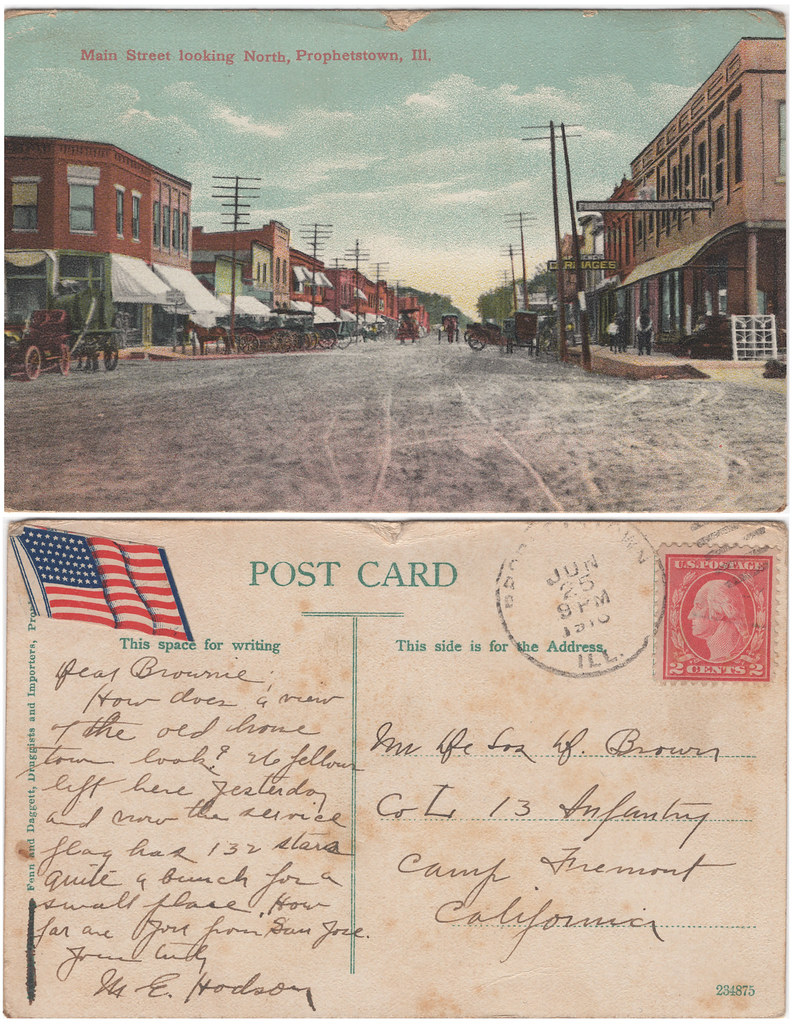 Main Street looking North, Prophetstown, Ill.
CARRIAGES
POST CARD
JUN
25
9 PM
ILL.
U.S. POSTAGE
2 CENTS 2
This space for writing
This side is for the Address
Dear Brownie;
How does a view
of the old home
town look? 26 fellows
left here yesterday
and now the service
flag has 132 stars
quite a bunch for a
small place. How
far are you from San Jose.
Yours truly
M. E. Hodson
Mr De Sox W. Brown
Co L 13 Infantry
Camp Fremont
California
Fenn and Daggett, Druggists and Importers,
234875